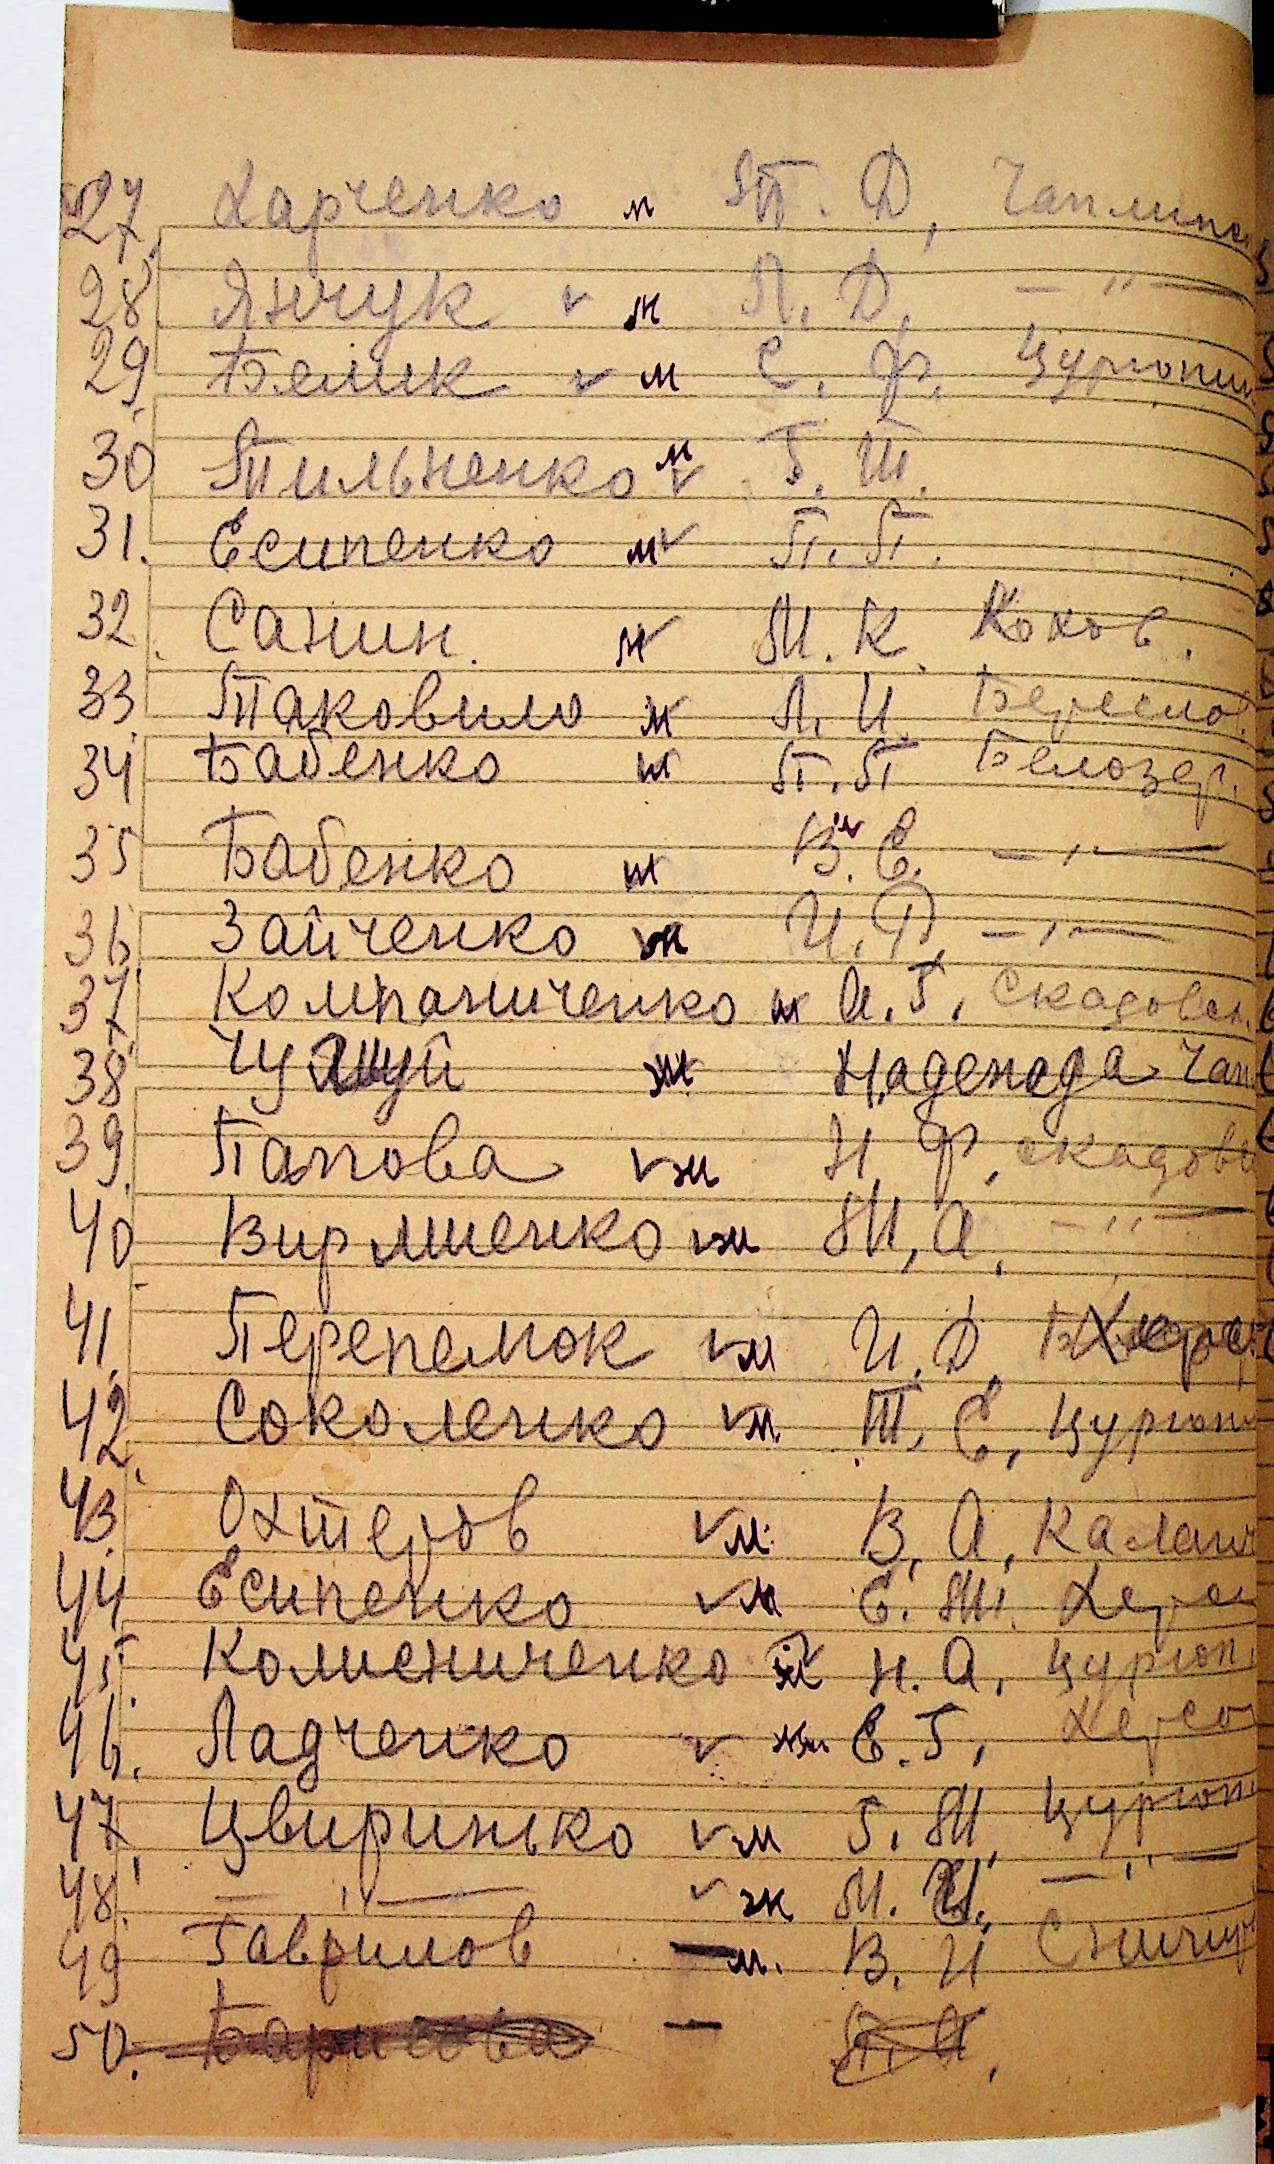 27. Харченко м П. Д, Чаплинс
28. Янчук м Л. Д, — " —
29. Белик м С. Ф. Цурюпин
30 Пильненко м Г. Ш.
31. Есипенко м П. П.
32. Санин. м М. К. Кахов.
33. Таковило м Л. И. Береслов.
34 Бабенко ж П. П Белозер.
35 Бабенко ж В. Е. — " —
36. Зайченко ж И. П, — " —
37. Компаниченко ж А. Г. Скадовск.
38. ж Надежда Чап
39. Папова ж Н. Ф. Скадовс
40 ж М. А. — " —
41. Перепелюк м И. Д.
42. Соколенко м Т. Е, Цурюп
43. Охтеров м. В. А, Каланч
44 Есипенко м Е. М. Херсо
45. ж Н. А, Цурюп
46. Ладченко ж Е. Г, Херсо
47. Цвиринько м Г. М, Цурюп
48. — " — ж М. И. — " —
49 Гаврилов — м. В. И
50. Барисова — П. А,